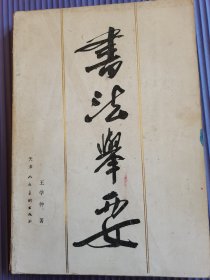 書法舉要
王学仲 著
天津人民美術出版社